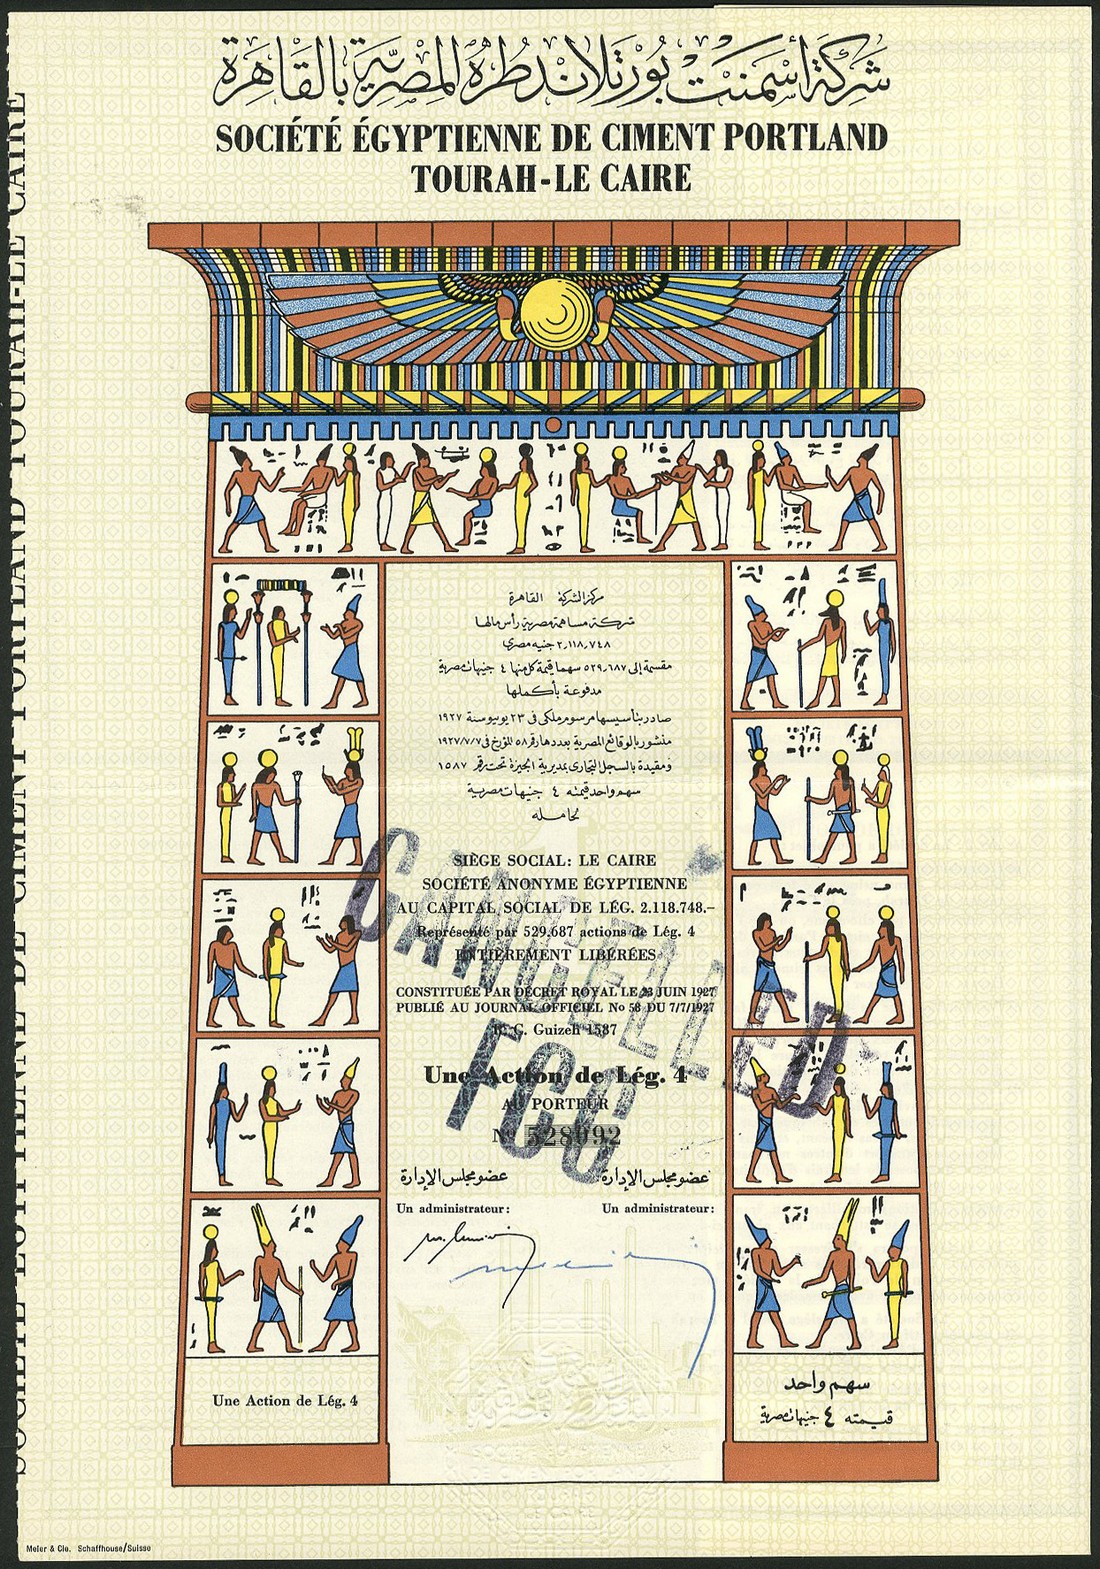 شركة أسمنت بورتلاند طره المصرية بالقاهرة
SOCIÉTÉ ÉGYPTIENNE DE CIMENT PORTLAND
TOURAH-LE CAIRE
SOCIÉTÉ ÉGYPTIENNE DE CIMENT PORTLAND TOURAH-LE CAIRE
مركز الشركة القاهرة
شركة مساهمة مصرية رأس مالها
٢٫١١٨٫٧٤٨ جنيه مصرى
مقسمة إلى ٥٢٩٫٦٨٧ سهما قيمة كل منها ٤ جنيهات مصرية
مدفوعة بأكملها
صادر بتأسيسها مرسوم ملكى فى ٢٣ يونيو سنة ١٩٢٧
منشور بالوقائع المصرية بعددها رقم ٥٨ المؤرخ فى ١٩٢٧/٧/٧
ومقيدة بالسجل التجارى بمديرية الجيزة تحت رقم ١٥٨٧
سهم واحد قيمته ٤ جنيهات مصرية
لحامله
SIÈGE SOCIAL: LE CAIRE
SOCIÉTÉ ANONYME ÉGYPTIENNE
AU CAPITAL SOCIAL DE LÉG. 2.118.748.–
Représenté par 529.687 actions de Lég. 4
ENTIÈREMENT LIBÉRÉES
CONSTITUÉE PAR DÉCRET ROYAL LE 23 JUIN 1927
PUBLIÉ AU JOURNAL OFFICIEL No 58 DU 7/7/1927
R. C. Guizeh 1587
CANCELLED
FCG
Une Action de Lég. 4
AU PORTEUR
No 528092
عضو مجلس الإدارة عضو مجلس الإدارة
Un administrateur: Un administrateur:
Une Action de Lég. 4
سهم واحد
قيمته ٤ جنيهات مصرية
Meier & Cie. Schaffhouse/Suisse